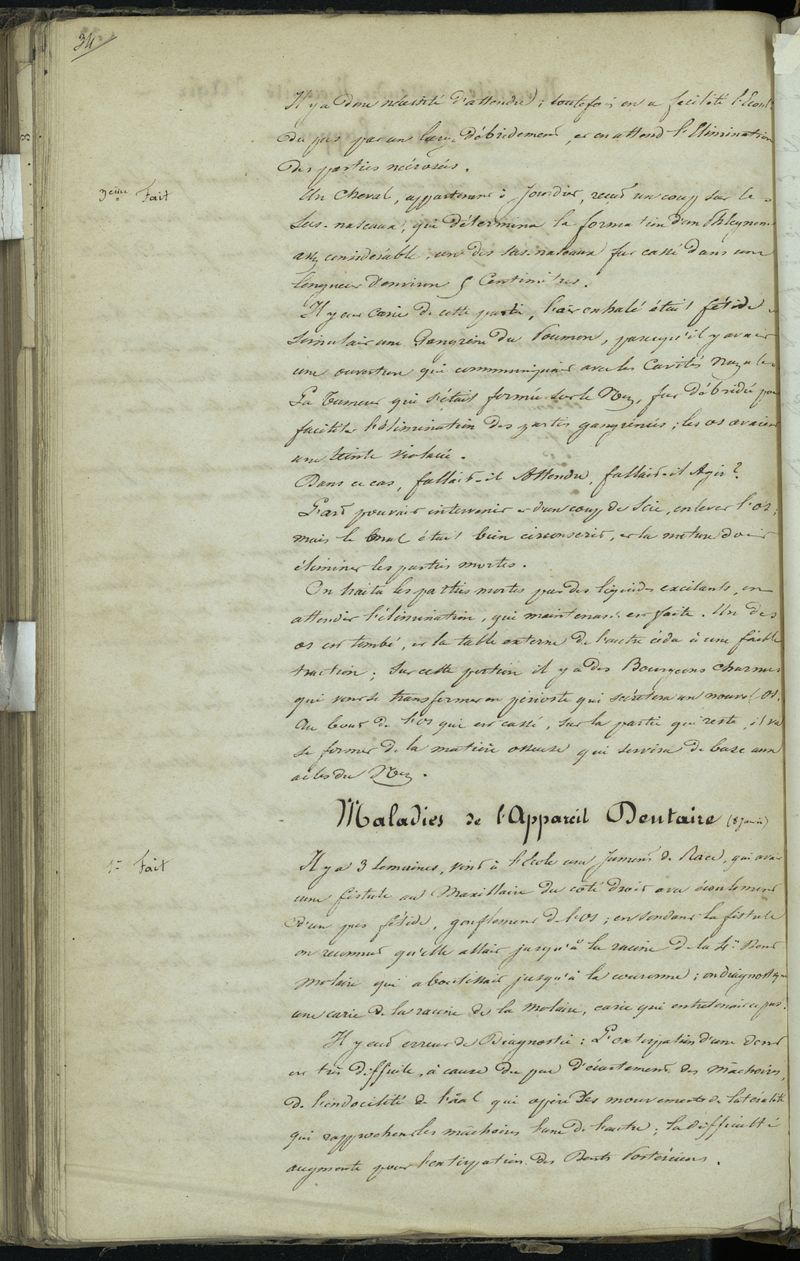 34
Il y a donc nécessité d'attendre ; toutefois on a facilité l'écoul
du pus par un large débridement, et on attend l'Elimination
des parties nécrosées.
3eme Fait
Un Cheval, appartenant à Jourdier, reçut un coup sur le
Sus-naseaux, qui détermina la formation d'un Phlegmon
assez considérable ; un des sus-naseaux fut cassé dans une
longueur d'environ 5 Centimètres.
Il y eut Carie de cette partie, l'air exhalé était fétide
Simulait une Gangrène du Poumon, parcequ'il y avait
une ouverture qui communiquait avec les Cavités Nazales
La Tumeur qui s'était formée sur le Nez, fut débridée pour
faciliter l'élimination des parties gangrénées ; les os avaient
une teinte violacée.
Dans ce cas, fallait-il Attendre, fallait-il Agir ?
L'art pouvait intervenir et d'un coup de Scie, enlever l'os ;
mais le mal était bien circonscrit, et la nature devait
éliminer les parties mortes.
On traita les parties mortes par des liquides excitants, on
attendit l'élimination, qui maintenant est faite. Un des
os est tombé, et la table externe de l'autre céda à une faible
traction ; sur cette portion il y a des Bourgeons charnus
qui vont se transformer en périoste qui sécrétera un nouvel os.
Au bout de l'os qui est cassé, sur la partie qui reste, il va
se former de la matière osseuse qui servira de base aux
ailes du Nez.
Maladies de l'Appareil Dentaire (8 Janvier)
1er Fait
Il y a 3 semaines, vint à l'école une Jument de Race, qui avait
une fistule au Maxillaire du côté droit avec écoulement
d'un pus fétide, gonflement de l'os ; en sondant la fistule
on reconnut qu'elle allait jusqu'à la racine de la 4e Dent
molaire qui aboutissait jusqu'à la couronne ; on diagnostiqua
une carie de la racine de la molaire, carie qui entretenait ce pus.
Il y eut erreur de Diagnostic : L'extirpation d'une dent
est très difficile, à cause du peu d'écartement des mâchoires,
de l'indocilité de l'âal qui opère des mouvements de latéralité
qui rapprochent les mâchoires l'une de l'autre ; la difficulté
augmente pour l'extirpation des Dents Postérieures.